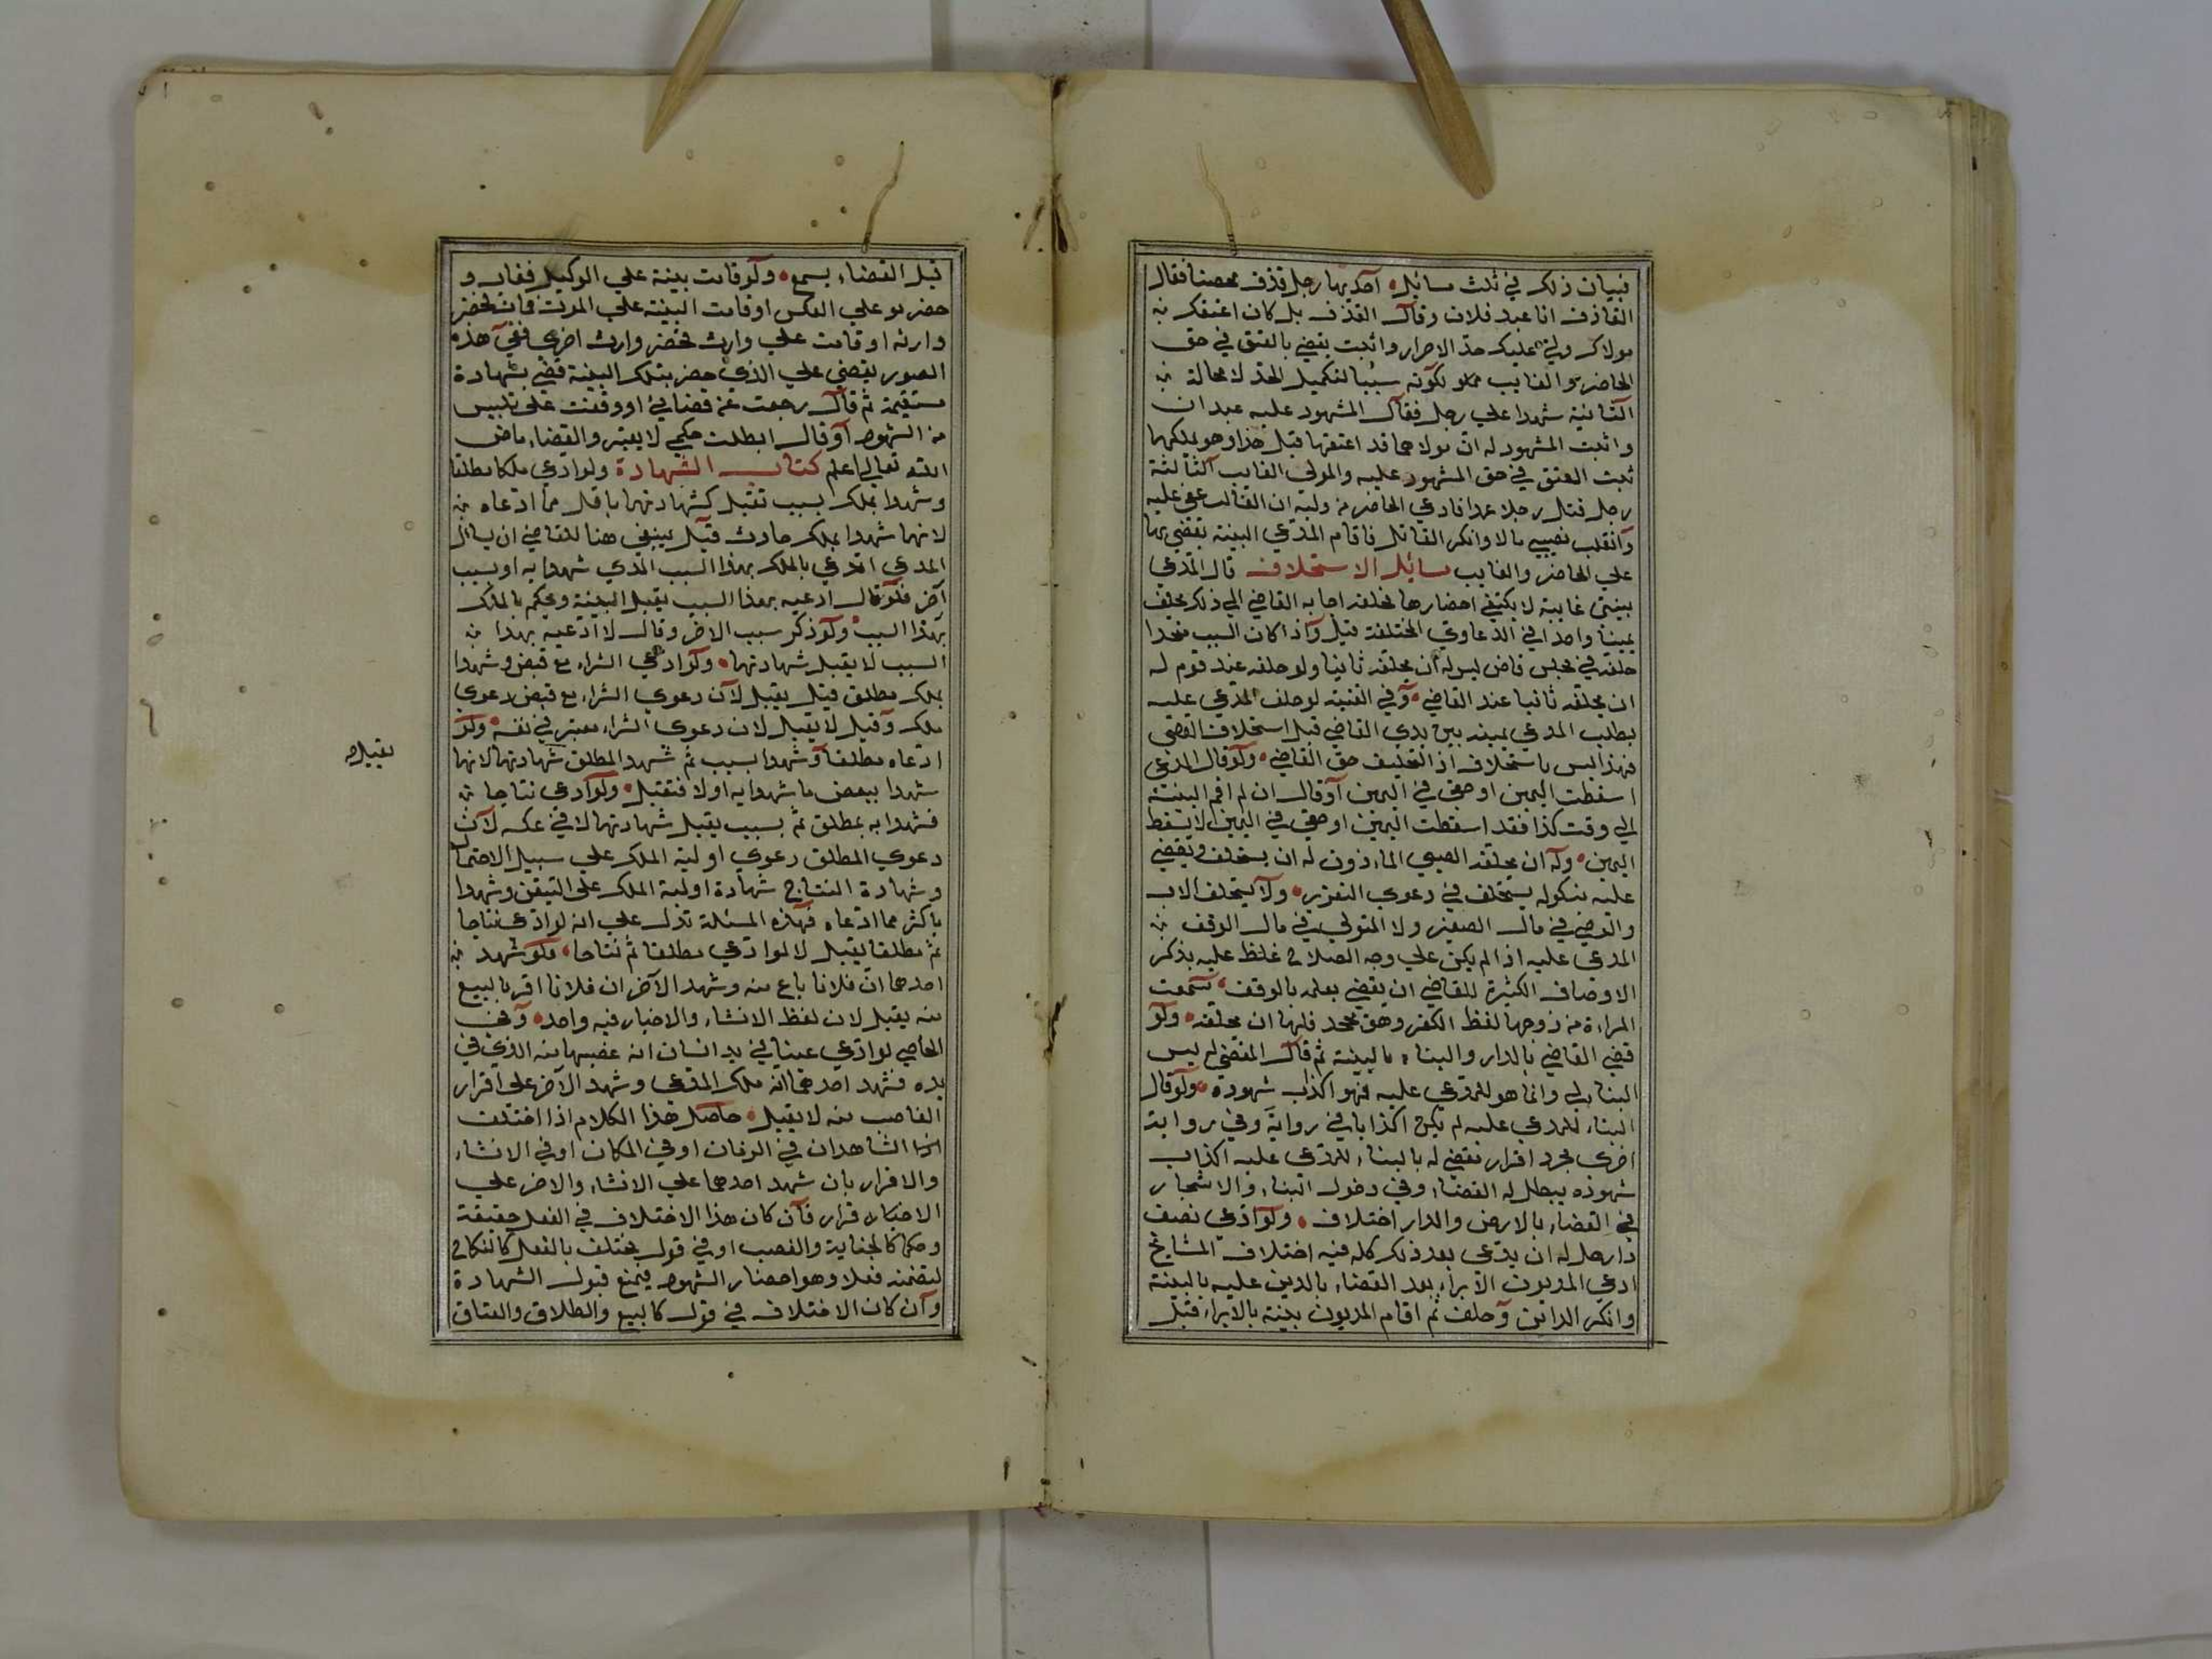 فبيان ذلك في ثلث مسائل احديها رجل قذف محصنا فقال
القاذف انا عبد فلان وقال المقذف بل كان اعتقك
مولاك ولي عليك حد الاحرار واثبت يقضي بالعتق في حق
الحاضر والغايب لكونه سببا لتكميل الحد لا محالة
الثانية شهدا علي رجل فقال المشهود عليه عبدان
واثبت المشهود له ان مولاهما قد اعتقهما قبل هذا وهو يملكهما
ثبت العتق في حق المشهود عليه والمولي الغايب الثالثة
رجل قتل رجلا عمدا فادعي الحاضر من وليه ان الغائب عفي عليه
وانقلب نصيبي مالا وانكر القاتل فاقام المدعي البينة تقضي بها
علي الحاضر والغايب مسائل الاستحلاف قال المدعي
بينتي غايبة لا يكتفي احضارها تحلفه اجابه القاضي الي ذلك يحلف
يمينا واحدا في الدعاوي المختلفة قيل واذا كان السبب متحدا
حلفه في مجلس قاض ليس له ان يحلفه ثانيا ولو حلفه عند قوم له
ان يحلفه ثانيا عند القاضي وفي القنية لو حلف المدعي عليه
بطلب المدعي يمينه بين يدي القاضي قبل استحلاف القضي
فهذا ليس باستحلاف اذ التحليف حق القاضي ولو قال المدعي
اسقطت اليمين او حقي في اليمين او قال ان لم اقم البينة
الي وقت كذا فقد اسقطت اليمين او حقي في اليمين لا يسقط
اليمين وله ان يحلفه الصبي الماذون له ان يستحلف ويقضي
عليه بنكوله يستحلف في دعوي التعزير ولا يستحلف الاب
والوصي في مال الصغير ولا المتولي في مال الوقف
المدعي عليه اذا لم يكن علي وجه الصلاح غلظ عليه بذكر
الاوصاف الكثيرة للقاضي ان يقضي بعلمه بالوقف سمعت
المراءة من زوجها لفظ الكفر وهو يجحد فلها ان تحلفه ولو
قضي القاضي بالدار والبناء بالبينة ثم قال المقضي له ليس
البنا لي وانما هو للمدعي عليه فهو اكذاب شهوده ولو قال
البناء للمدعي عليه لم يكن اكذابا في رواية وفي رواية
اخري مجرد اقرار نقضي له بالبناء للمدعي عليه اكذاب
شهوده يبطل له القضاء وفي دخول البناء والاشجار
في القضاء بالارض والدار اختلاف ولو ادعي نصف
دار هل له ان يدعي بعد ذلك كله فيه اختلاف المشايخ
ادعي المديون الابراء بعد القضاء بالدين عليه بالبينة
وانكر الداين وحلف ثم اقام المديون بينة بالابراء قبل
قبل القضاء يسمع ولو قامت بينة علي الوكيل فغاب و
حضر هو علي العكس او قامت البينة علي المورث فمات فحضر
وارثه او قامت علي وارث فحضر وارث اخري ففي هذه
الصور يقضي علي الذي حضر بتلك البينة قضي بشهادة
مستقيمة ثم قال رجعت عن قضايي او وقفت علي تلبيس
من الشهود او قال ابطلت حكمي لا يعتبر والقضاء ماض
الله تعالي اعلم كتاب الشهادة ولو ادعي ملكا مطلقا
وشهدوا بملك بسبب تقبل كشهادتهما باقل مما ادعاه
لانهما شهدوا بملك حادث قيل ينبغي هنا للقاضي ان يسال
المدعي اتدعي بالملك بهذا السبب الذي شهدوا به او بسبب
آخر فلو قال ادعيه بهذا السبب يقبل البينة ويحكم بالملك
بهذا السبب ولو ذكر سبب الاخر وقال لا ادعيه بهذا
السبب لا يقبل شهادتهما ولو ادعي الشراء مع قبض وشهدوا
بملك مطلق قيل يقبل لان دعوي الشراء مع قبض دعوي
ملك وقيل لا يقبل لان دعوي الشراء معتبر في نفسه ولو
ادعاه مطلقا وشهدوا بسبب ثم شهد المطلق شهادتهما لانهما
تقبل صح
شهدوا ببعض ما شهدوا به اولا فتقبل ولو ادعي نتاجا
فشهدوا به بمطلق ثم بسبب يقبل شهادتهما لا في عكسه لان
دعوي المطلق دعوي اولية الملك علي سبيل الاحتمال
وشهادة النتاج شهادة اولية الملك علي التيقن وشهدوا
باكثر مما ادعاه فهذه المسئلة تدل علي انه لو ادعي نتاجا
ثم مطلقا يقبل لا لو ادعي مطلقا ثم نتاجا ولو شهد
احدهما ان فلانا باع منه وشهد الآخر ان فلانا اقر بالبيع
منه يقبل لان لفظ الانشاء والاخبار فيه واحد وفي
الحاصي لو ادعي عينا في يد انسان انه غصبها منه الذي في
يده فشهد احدهما انه ملك المدعي وشهد الآخر علي اقرار
الغاصب منه لا يقبل حاصل هذا الكلام اذا اختلف
الشاهدان في الزمان او في المكان او في الانشاء
والاقرار بان شهد احدهما علي الانشاء والاخر علي
الاخبار قرار فان كان هذا الاختلاف في الفعل حقيقة
وحكما كالجناية والغصب او في قول مختلف بالفعل كالنكاح
لتضمنه فعلا وهو احضار الشهود فيمنع قبول الشهادة
وان كان الاختلاف في قول كالبيع والطلاق والعتاق